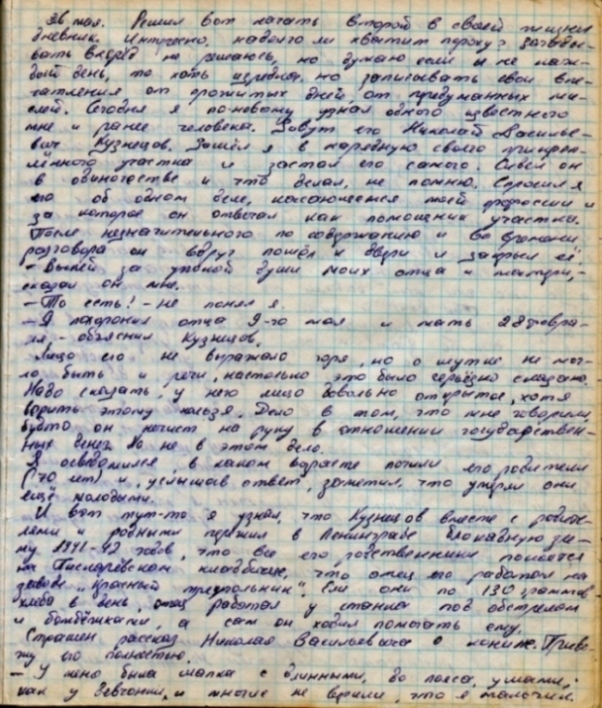 26 мая. Решил вот начать второй в своей жизни
дневник. Интересно, надолго ли хватит пороху? Загады-
вать вперёд не решаюсь, но думаю если и не каж-
дый день, то хоть изредка, но записывать свои впе-
чатления от прожитых дней, от придуманных мы-
слей. Сегодня я по-новому узнал одного известного
мне и ранее человека. Зовут его Николай Василье-
вич Кузнецов. Зашёл я в нарядную своего прикреп-
лённого участка и застал его самого. Сидел он
в одиночестве и что делал, не помню. Спросил я
его об одном деле, касающемся моей профессии и
за которое он отвечал как помощник участка.
После незначительного по содержанию и во времени
разговора он вдруг пошёл к двери и закрыл её.
- Выпей за упокой души моих отца и матери, -
сказал он мне.
- То есть? - не понял я.
- Я похоронил отца 9-го мая и мать 28 февра-
ля - объяснил Кузнецов.
Лицо его не выражало горя, но о шутке не мог-
ло быть и речи, настолько это было серьёзно сказано.
Надо сказать, у него лицо довольно открытое, хотя
верить этому нельзя. Дело в том, что мне говорили
будто он нечист на руку в отношении государствен-
ных денег. Но не в этом дело.
Я осведомился, в каком возрасте почили его родители
(70 лет) и, услышав ответ, заметил, что умерли они
ещё молодыми.
И вот тут-то я узнал, что Кузнецов вместе с родите-
лями и родными пережил в Ленинграде блокадную зи-
му 1941-42 годов, что все его родственники покоятся
на Пискарёвском кладбище, что отец его работал на
заводе "Красный треугольник". Ели они по 130 граммов
хлеба в день, отец работал у станка под обстрелом
и бомбёжками, а сам он ходил помогать ему.
Страшен рассказ Николая Васильевича о конине. Приво-
жу его полностью.
- У меня была шапка с длинными, до пояса, ушами,
как у девчонки, и многие не верили, что я мальчик.